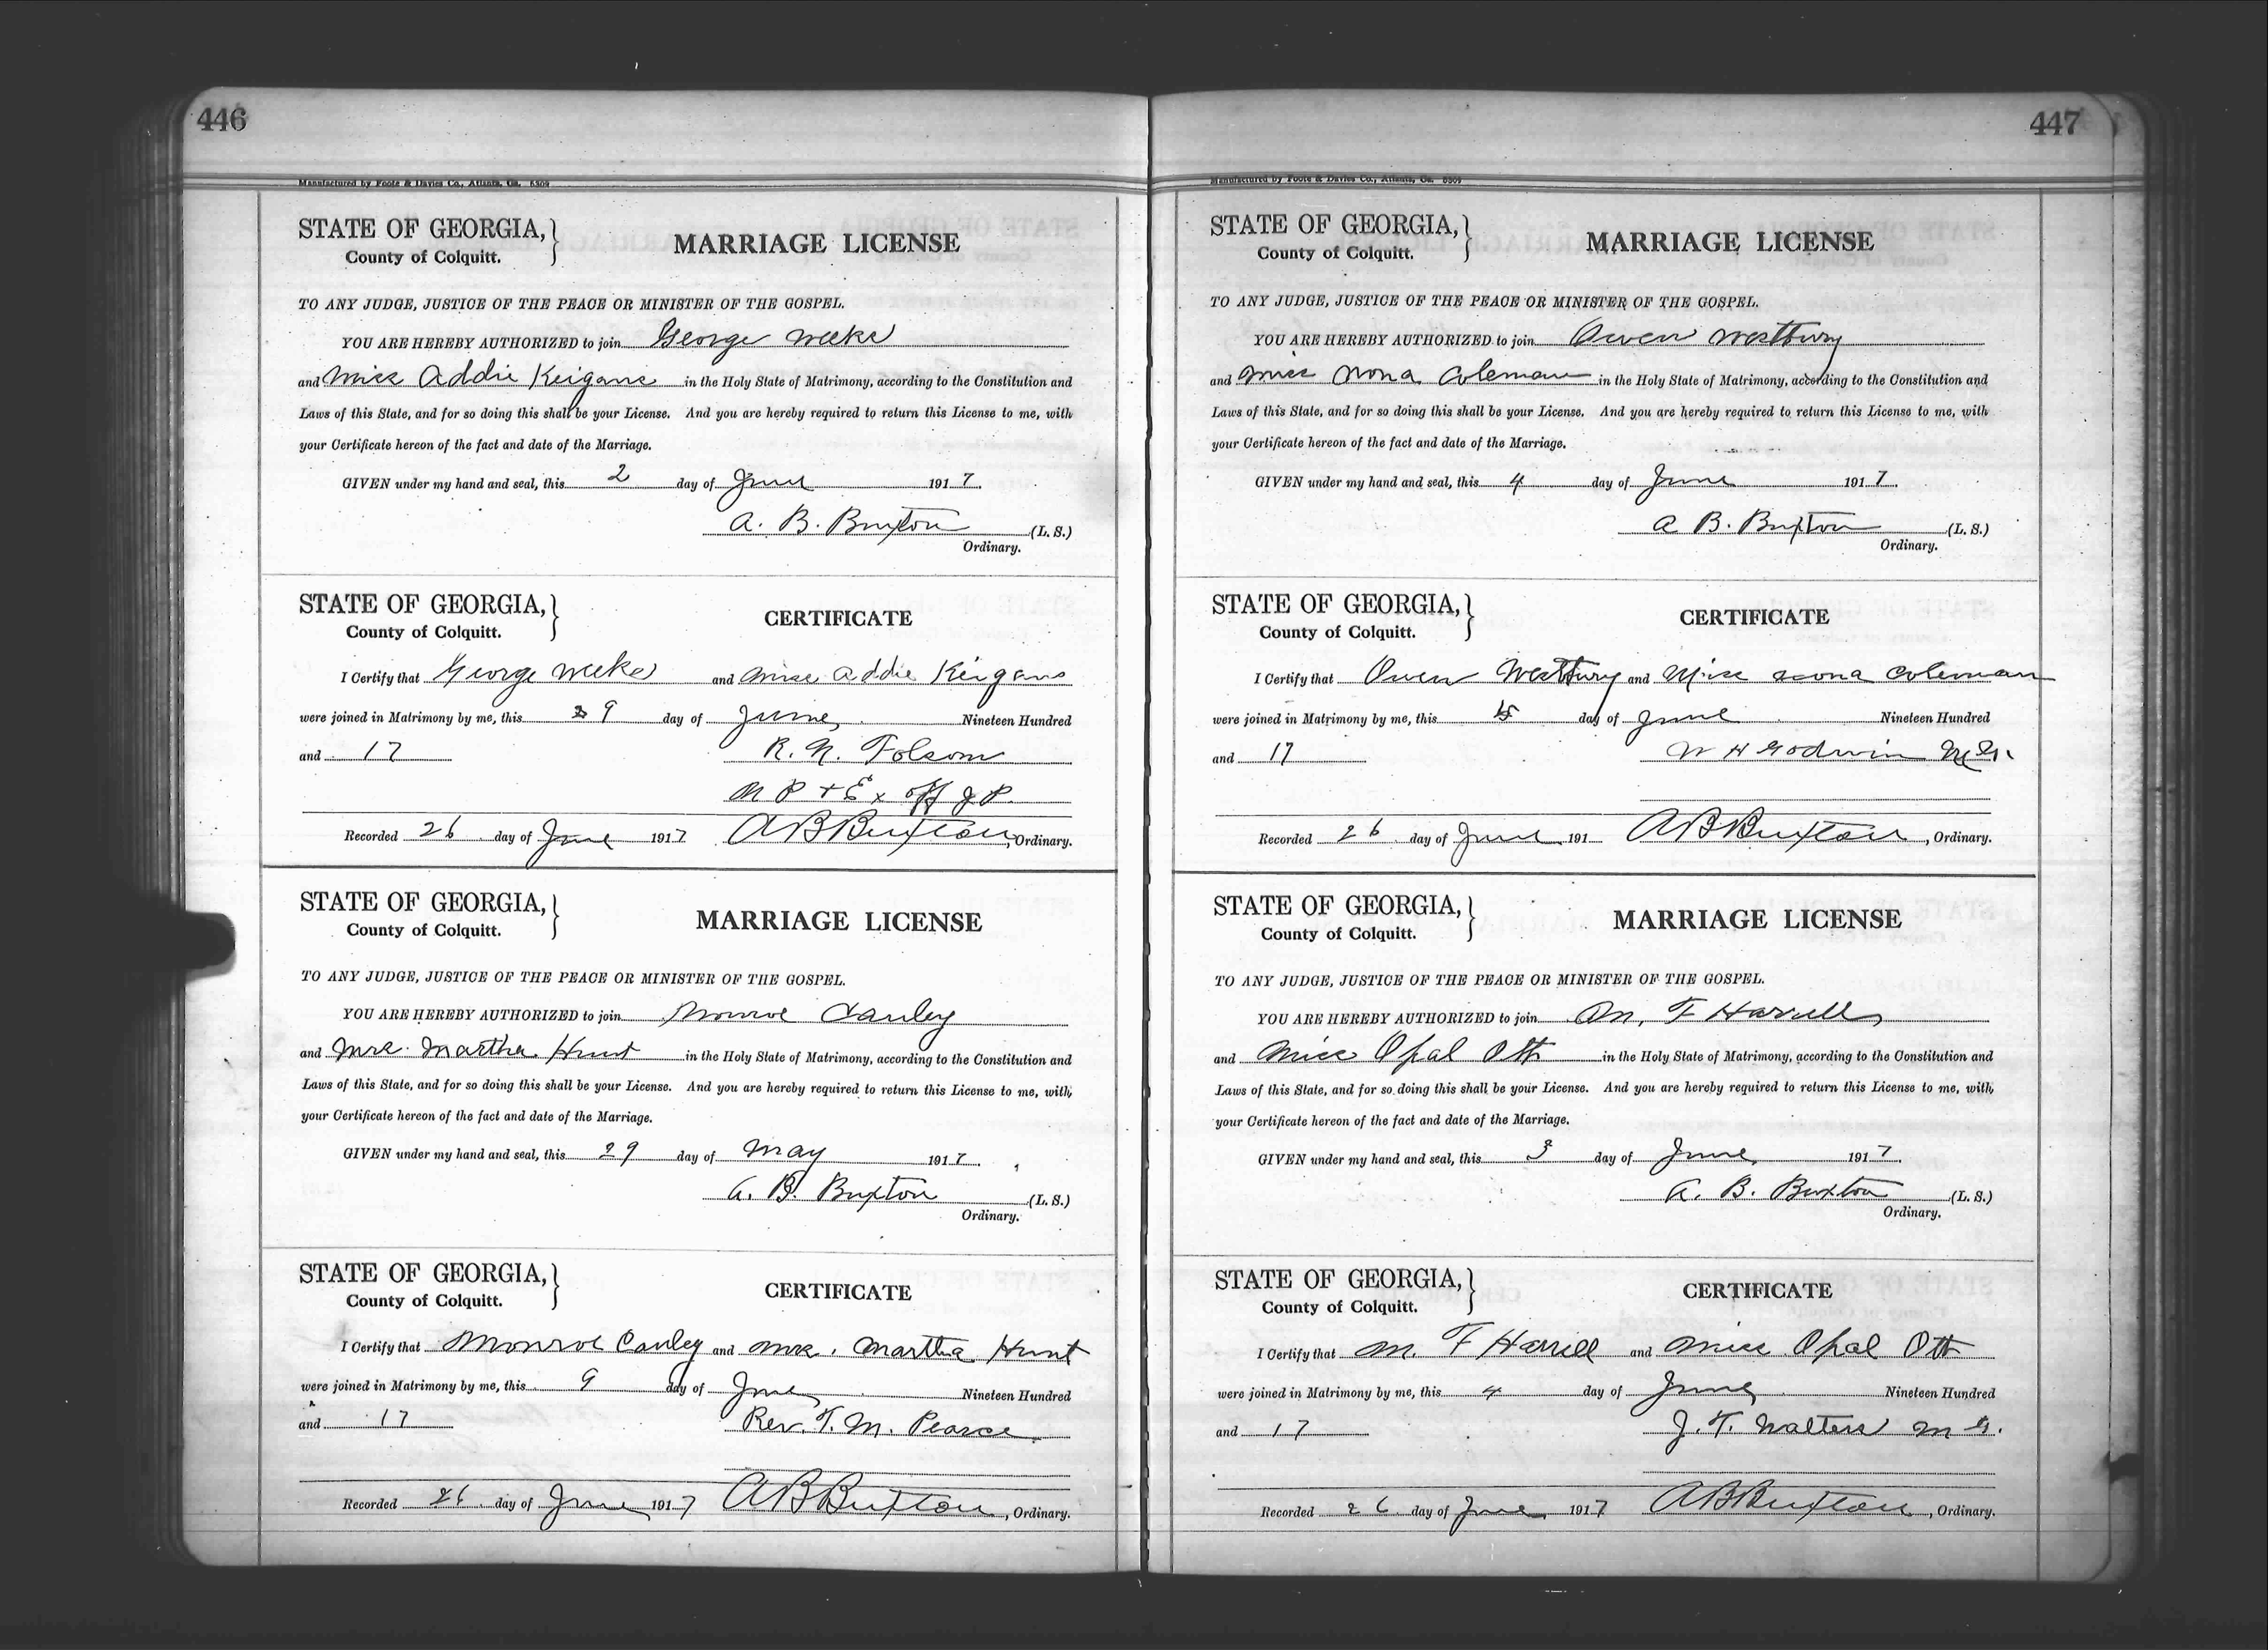 446
Manufactured by Foote & Davies Co., Atlanta, Ga. 6509
STATE OF GEORGIA,
County of Colquitt.
MARRIAGE LICENSE
TO ANY JUDGE, JUSTICE OF THE PEACE OR MINISTER OF THE GOSPEL.
YOU ARE HEREBY AUTHORIZED to join George Weeks
and Miss Addie Keigans in the Holy State of Matrimony, according to the Constitution and
Laws of this State, and for so doing this shall be your License. And you are hereby required to return this License to me, with
your Certificate hereon of the fact and date of the Marriage.
GIVEN under my hand and seal, this 2 day of June 1917.
A. B. Buxton (L. S.)
Ordinary.
STATE OF GEORGIA,
County of Colquitt.
CERTIFICATE
I Certify that George Weeks and Miss Addie Keigans
were joined in Matrimony by me, this 9 day of June, Nineteen Hundred
and 17
R. N. Folsom
N P + Ex off J P.
Recorded 26 day of June 1917 A B Buxton, Ordinary.
STATE OF GEORGIA,
County of Colquitt.
MARRIAGE LICENSE
TO ANY JUDGE, JUSTICE OF THE PEACE OR MINISTER OF THE GOSPEL.
YOU ARE HEREBY AUTHORIZED to join Monroe Cauley
and Mrs. Martha Hunt in the Holy State of Matrimony, according to the Constitution and
Laws of this State, and for so doing this shall be your License. And you are hereby required to return this License to me, with
your Certificate hereon of the fact and date of the Marriage.
GIVEN under my hand and seal, this 29 day of May 1917.
A. B. Buxton (L. S.)
Ordinary.
STATE OF GEORGIA,
County of Colquitt.
CERTIFICATE
I Certify that Monroe Cauley and Mrs. Martha Hunt
were joined in Matrimony by me, this 9 day of June Nineteen Hundred
and 17
Rev. T. M. Pearce
Recorded 26 day of June 1917 A B Buxton, Ordinary.
447
Manufactured by Foote & Davies Co., Atlanta, Ga. 6509
STATE OF GEORGIA,
County of Colquitt.
MARRIAGE LICENSE
TO ANY JUDGE, JUSTICE OF THE PEACE OR MINISTER OF THE GOSPEL.
YOU ARE HEREBY AUTHORIZED to join Owen Westbury
and Miss Nona Coleman in the Holy State of Matrimony, according to the Constitution and
Laws of this State, and for so doing this shall be your License. And you are hereby required to return this License to me, with
your Certificate hereon of the fact and date of the Marriage.
GIVEN under my hand and seal, this 4 day of June 1917.
A B. Buxton (L. S.)
Ordinary.
STATE OF GEORGIA,
County of Colquitt.
CERTIFICATE
I Certify that Owen Westbury and Miss Nona Coleman
were joined in Matrimony by me, this day of June Nineteen Hundred
and 17
W H Godwin M.G.
Recorded 26 day of June 191 A B Buxton, Ordinary.
STATE OF GEORGIA,
County of Colquitt.
MARRIAGE LICENSE
TO ANY JUDGE, JUSTICE OF THE PEACE OR MINISTER OF THE GOSPEL.
YOU ARE HEREBY AUTHORIZED to join M. F Harrell
and Miss Opal Ott in the Holy State of Matrimony, according to the Constitution and
Laws of this State, and for so doing this shall be your License. And you are hereby required to return this License to me, with
your Certificate hereon of the fact and date of the Marriage.
GIVEN under my hand and seal, this 3 day of June 1917.
A. B. Buxton (L. S.)
Ordinary.
STATE OF GEORGIA,
County of Colquitt.
CERTIFICATE
I Certify that M. F Harrell and Miss Opal Ott
were joined in Matrimony by me, this 4 day of June Nineteen Hundred
and 17
J. T. Walters M G.
Recorded 26 day of June 1917 A B Buxton, Ordinary.